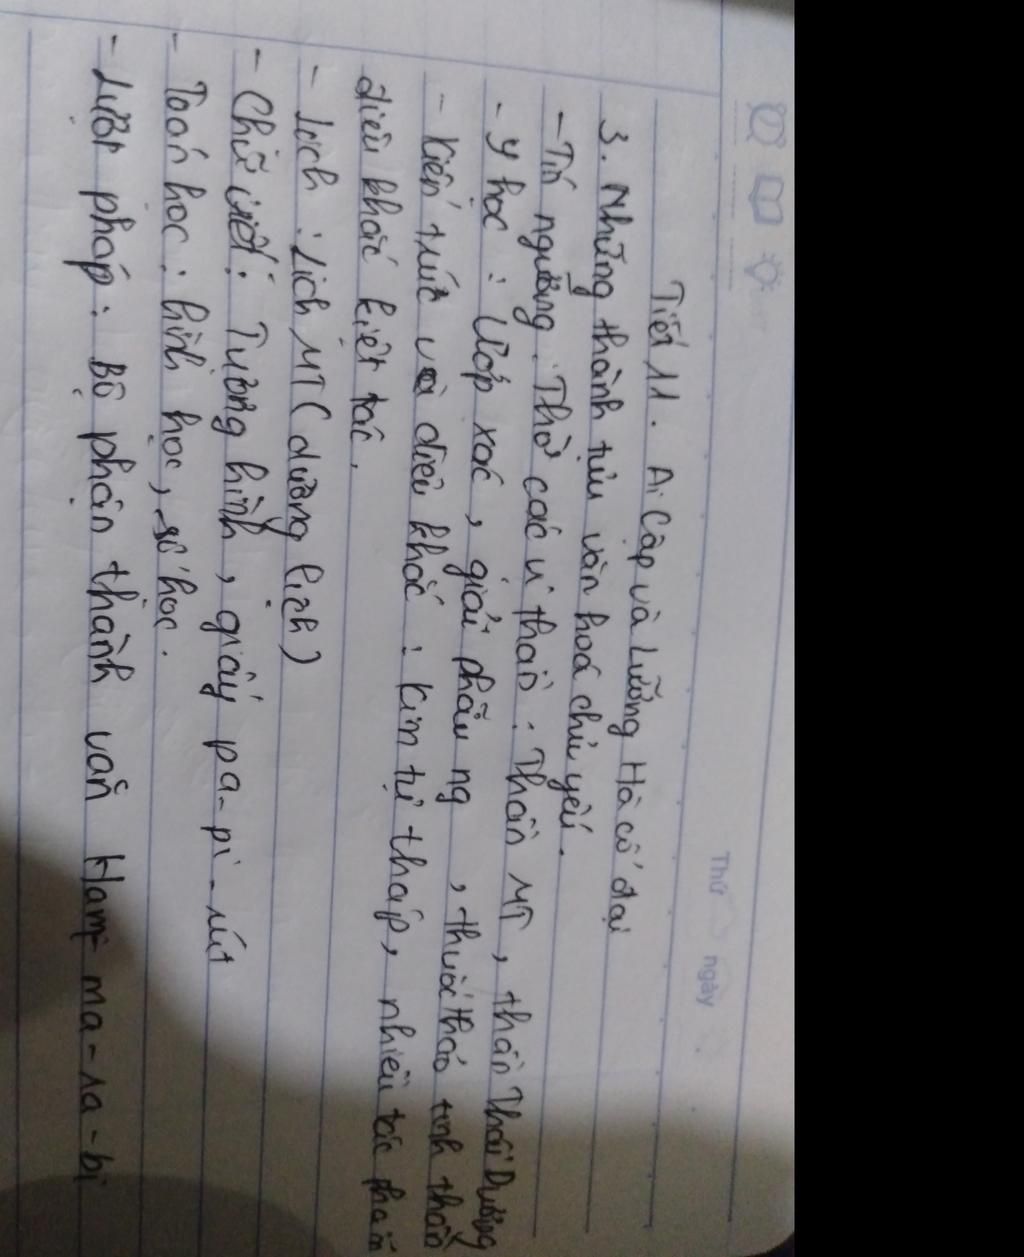 Thứ ngày
Tiết 11. Ai Cập và Lưỡng Hà cổ đại
3. Những thành tựu văn hoá chủ yếu.
- Tín ngưỡng: Thờ các vị thần: Thần MT, thần Thái Dương
- Y học: Ướp xác, giải phẫu ng, thuốc thảo tinh thần
- Kiến trúc và điêu khắc: Kim tự tháp, nhiều tác phẩm
điêu khắc kiệt tác.
- Lịch: Lịch MT (dương lịch)
- Chữ viết: Tượng hình, giấy pa-pi-rút
- Toán học: hình học, số học.
- Luật pháp: Bộ phận thành văn Ham-ma-ra-bi